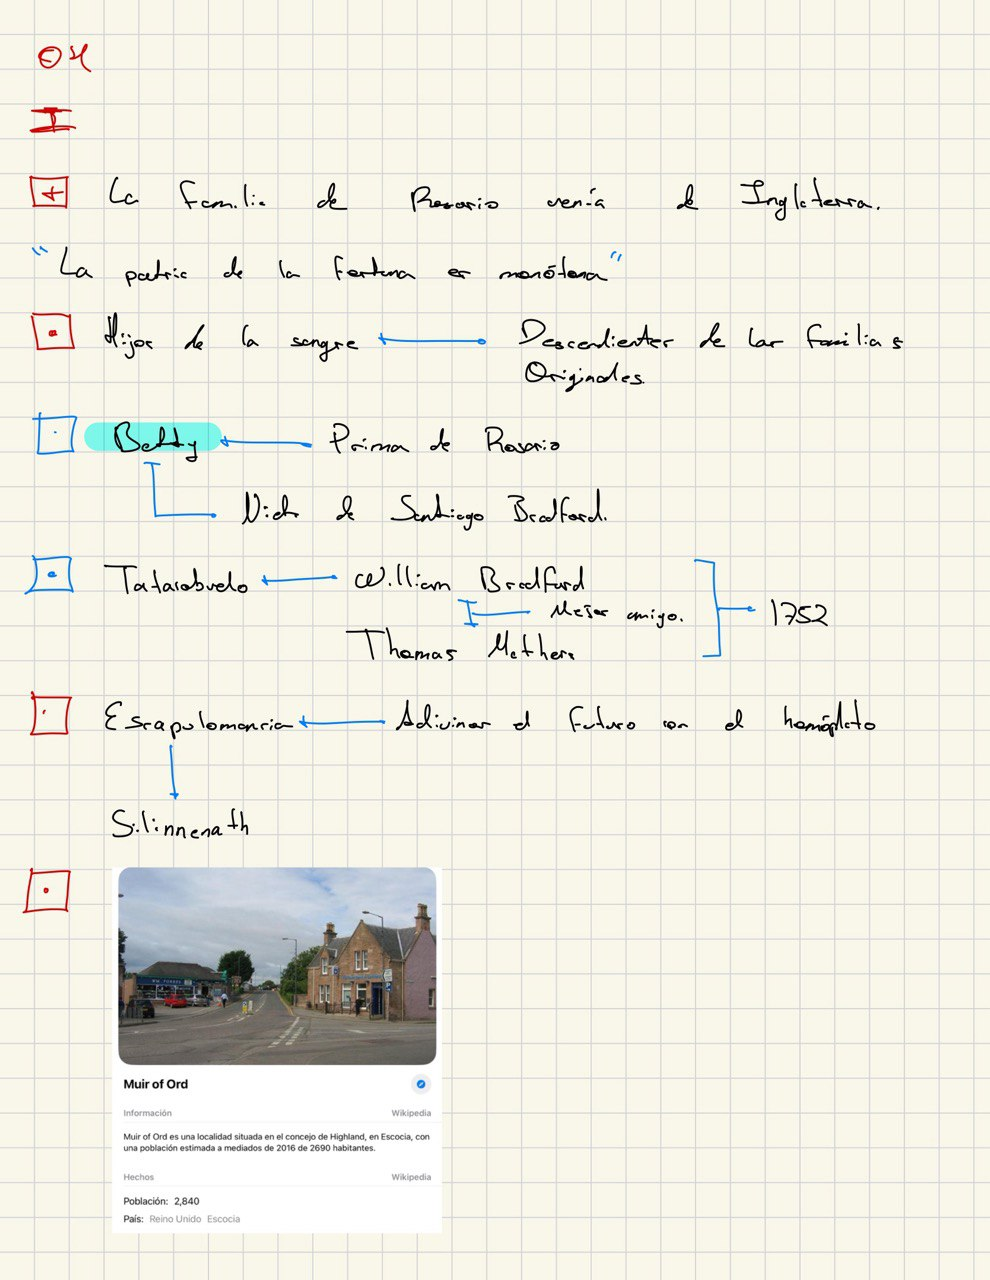 04
I
La familia de Rosario venía de Inglaterra.
"La patria de la fortuna es monótona"
Hijos de la sangre
Descendientes de las familias
Originales.
Betty
Prima de Rosario
de Santiago Bradford.
Tatarabuelo
William Bradford
Mejor amigo.
1752
Thomas Mathers
Escapulomancia
Adivinar el futuro con el homóplato
Silinnenath
WM. FORBES
Muir of Ord
Información Wikipedia
Muir of Ord es una localidad situada en el concejo de Highland, en Escocia, con
una población estimada a mediados de 2016 de 2690 habitantes.
Hechos Wikipedia
Población: 2,840
País: Reino Unido Escocia